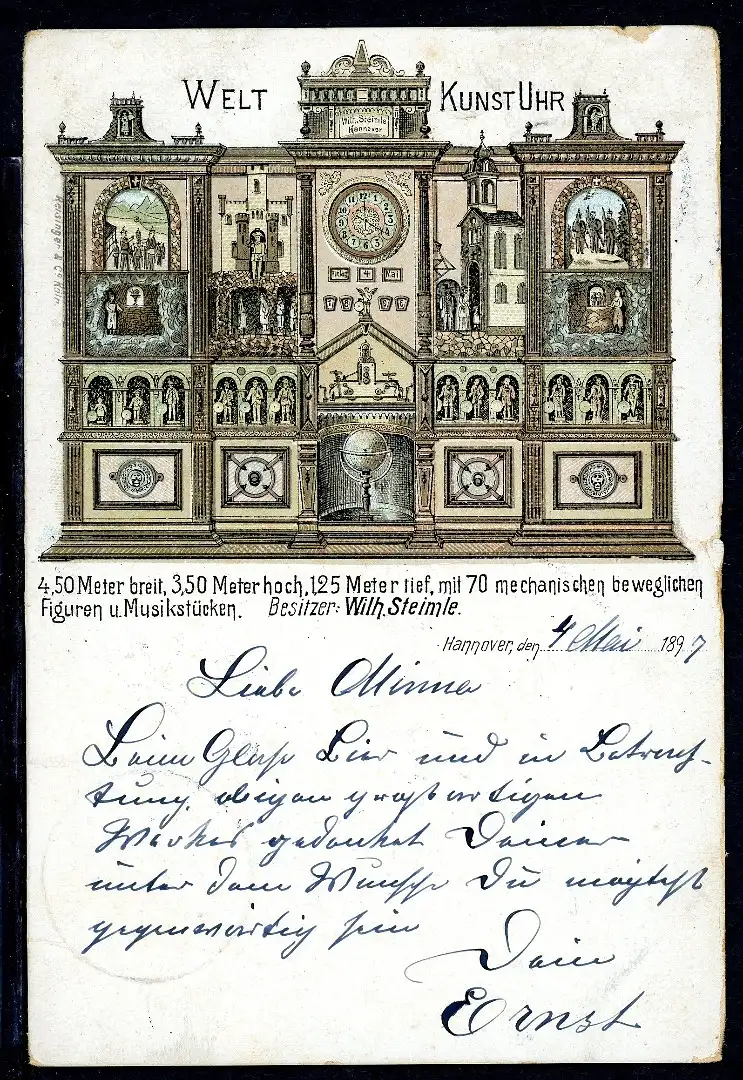 WELT KUNSTUHR
Wilh. Steimle
Hannover
4,50 Meter breit, 3,50 Meter hoch, 1,25 Meter tief, mit 70 mechanischen beweglichen
Figuren u. Musikstücken. Besitzer: Wilh. Steimle.
Hannover, den 4 Mai 1897
Liebe Minna
Beim Glase Bier und in Betrach-
tung obigen großartigen
Werkes gedenket Deiner
unter dem Wunsche Du möchtest
gegenwärtig sein
Dein
Ernst